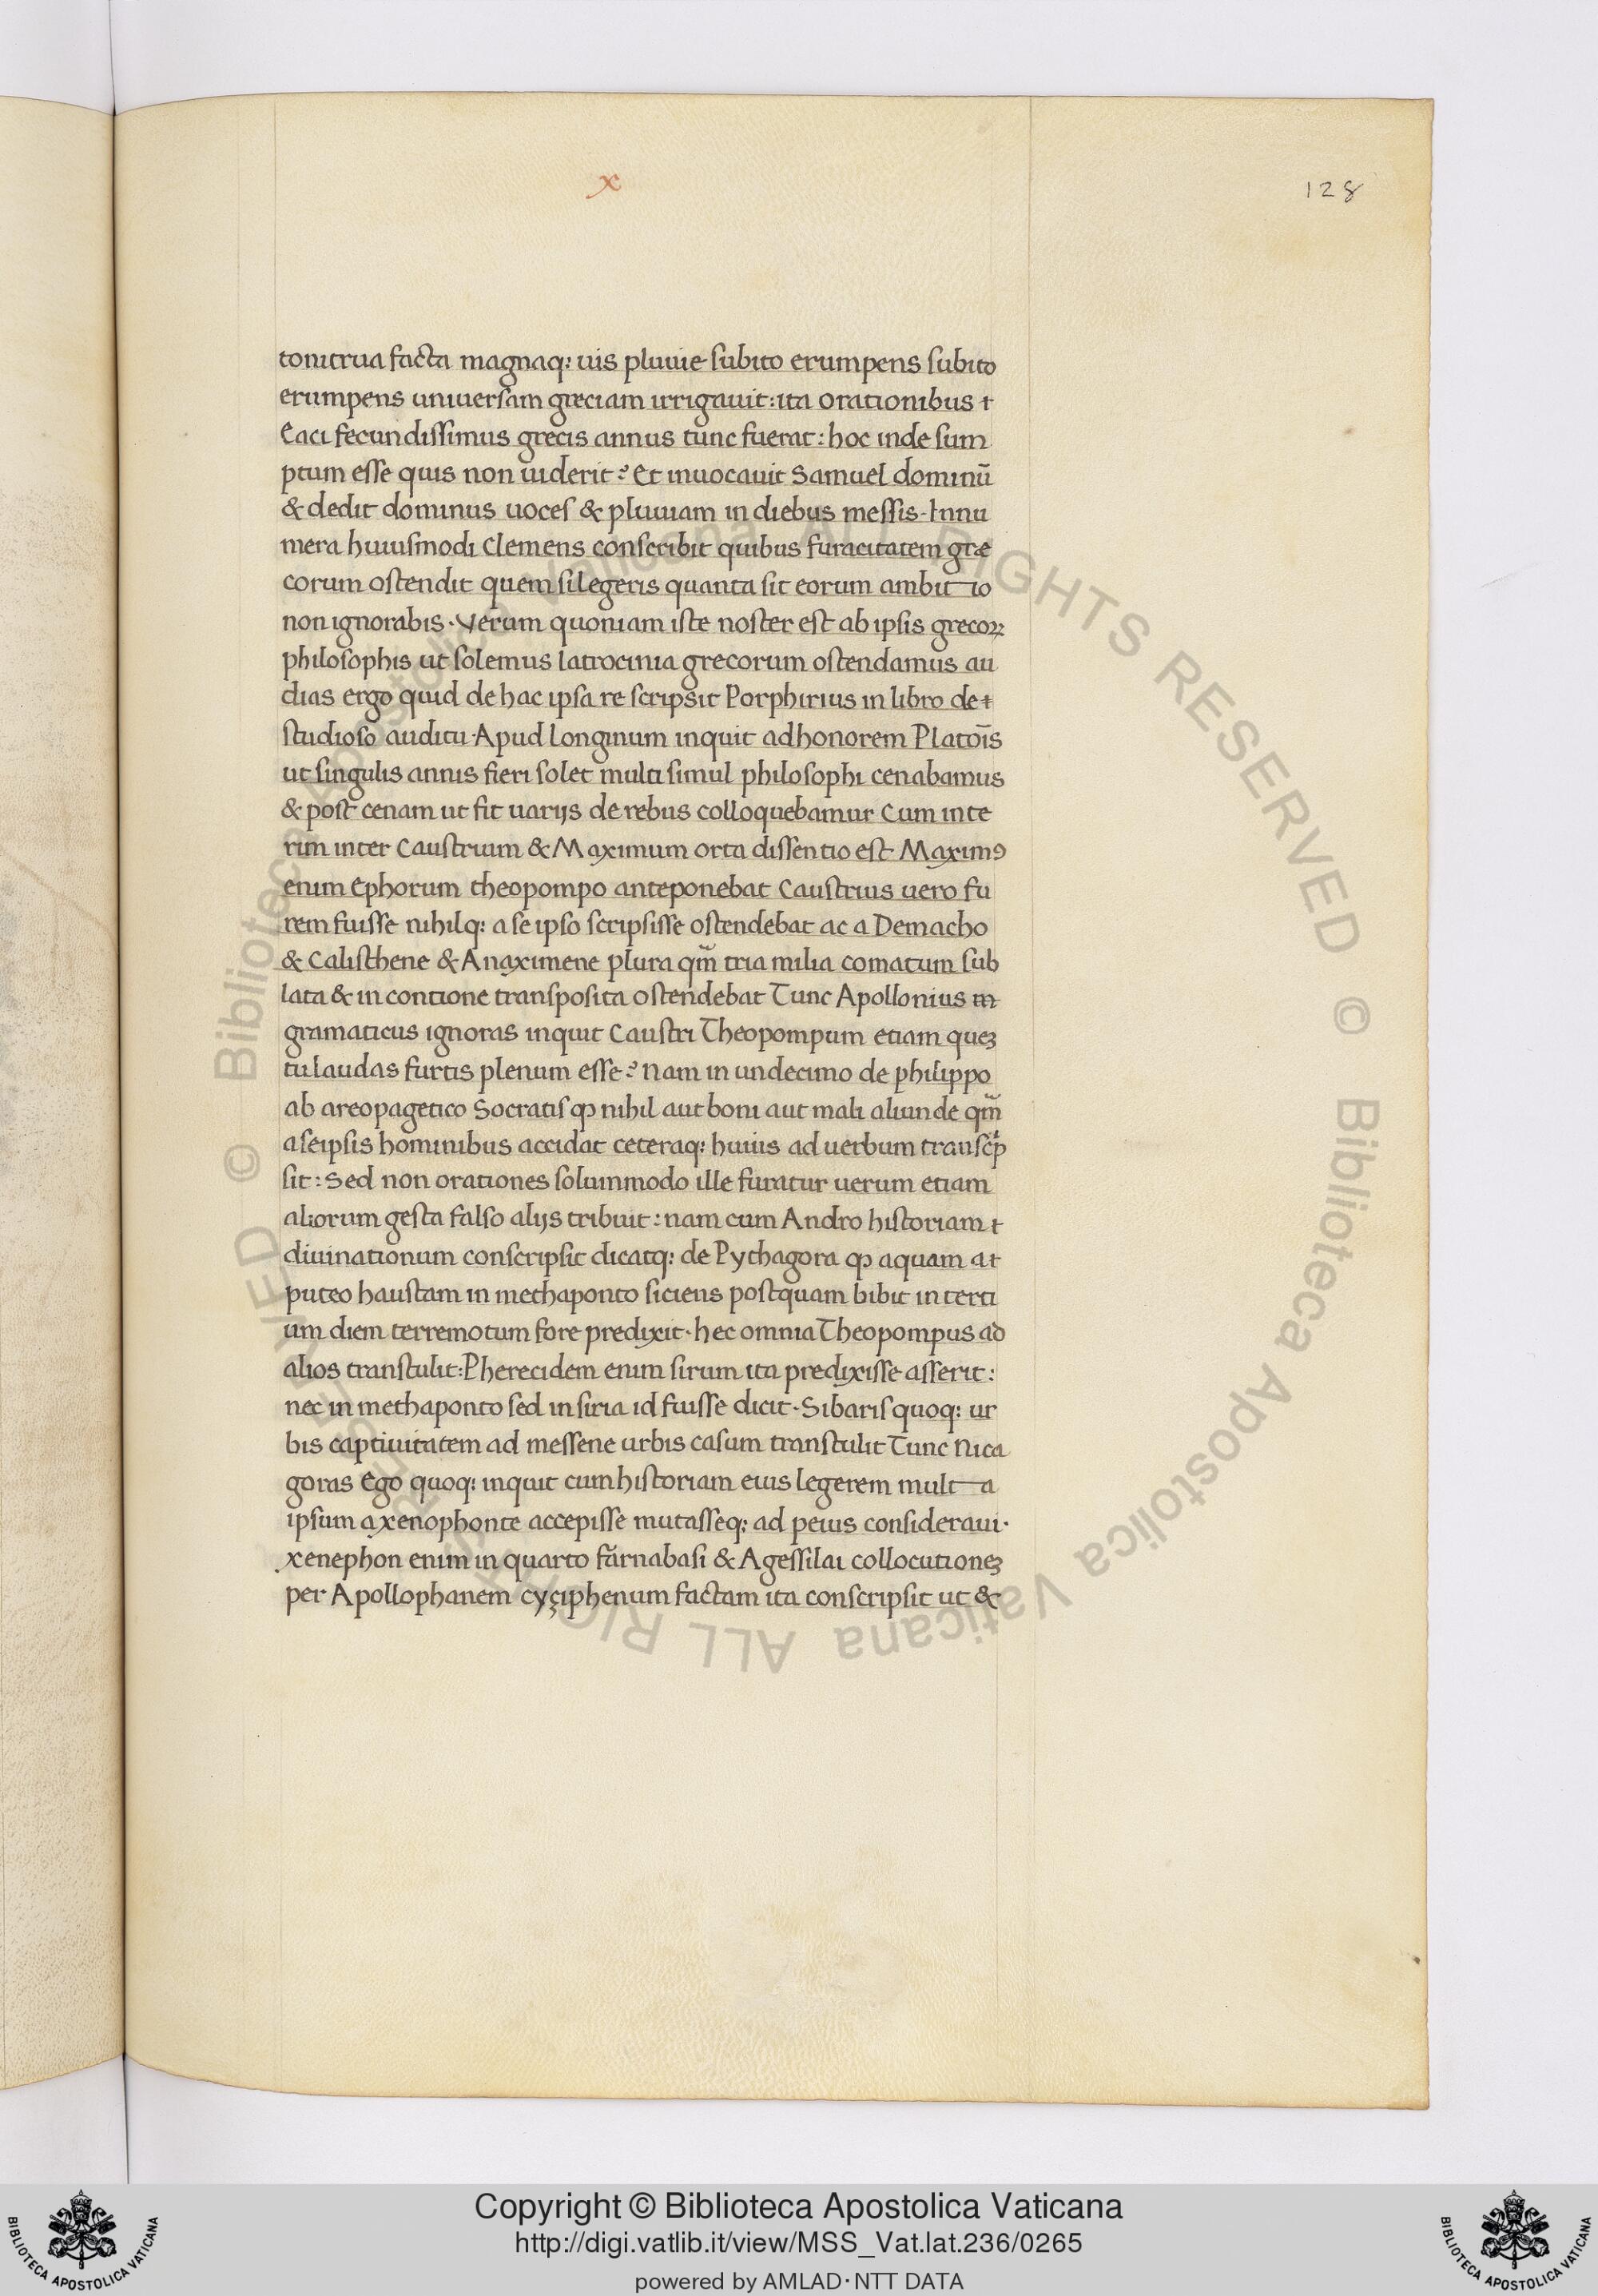 x
128
tonitrua facta magnaq: uis pluuie subito erumpens subito
erumpens uniuersam greciam irrigauit: ita orationibus
Eaci fecundissimus grecis annus tunc fuerat: hoc inde sum
ptum esse quis non uiderit? Et inuocauit Samuel dominū
& dedit dominus uoces & pluuiam in diebus messis. Innu
mera huiusmodi Clemens conscribit quibus furacitatem græ
corum ostendit quem si legeris quanta sit eorum ambitio
non ignorabis. Verum quoniam iste noster est ab ipsis grecoꝝ
philosophis ut solemus latrocinia grecorum ostendamus au
dias ergo quid de hac ipsa re scripsit Porphirius in libro de
studioso auditu. Apud Longinum inquit ad honorem Platoīs
ut singulis annis fieri solet multi simul philosophi cenabamus
& post cenam ut fit uarijs de rebus colloquebamur Cum inte
rim inter Caustrium & Maximum orta dissentio est Maximꝰ
enim Ephorum theopompo anteponebat Caustrius uero fu
rem fuisse nihilq: a se ipso scripsisse ostendebat ac a Demacho
& Calisthene & Anaximene plura qm̄ tria milia comatum sub
lata & in contione transposita ostendebat Tunc Apollonius
gramaticus ignoras inquit Caustri Theopompum etiam queꝫ
tu laudas furtis plenum esse? Nam in undecimo de philippo
ab areopagetico Socratis ꝙ nihil aut boni aut mali aliunde qm̄
a seipsis hominibus accidat ceteraq: huius ad uerbum transcp̄
sit: Sed non orationes solummodo ille furatur uerum etiam
aliorum gesta falso alijs tribuit: nam cum Andro historiam
diuinationum conscripsit dicatq: de Pythagora ꝙ aquam a
puteo haustam in methaponto siciens postquam bibit in terti
um diem terremotum fore predixit. hec omnia Theopompus ad
alios transtulit: Pherecidem enim sirum ita predixisse asserit:
nec in methaponto sed in siria id fuisse dicit. Sibaris quoq: ur
bis captiuitatem ad messene urbis casum transtulit Tunc Nica
goras Ego quoq: inquit cum historiam eius legerem multa
ipsum axenophonte accepisse mutasseq: ad peius consideraui.
xenephon enim in quarto farnabasi & Agessilai collocutioneꝫ
per Apollophanem cyçiphenum factam ita conscripsit ut &
© Biblioteca Apostolica Vaticana ALL RIGHTS RESERVED © Biblioteca Apostolica Vaticana ALL RIGHTS RESERVED
BIBLIOTECA APOSTOLICA VATICANA
Copyright © Biblioteca Apostolica Vaticana
http://digi.vatlib.it/view/MSS_Vat.lat.236/0265
powered by AMLAD·NTT DATA
BIBLIOTECA APOSTOLICA VATICANA